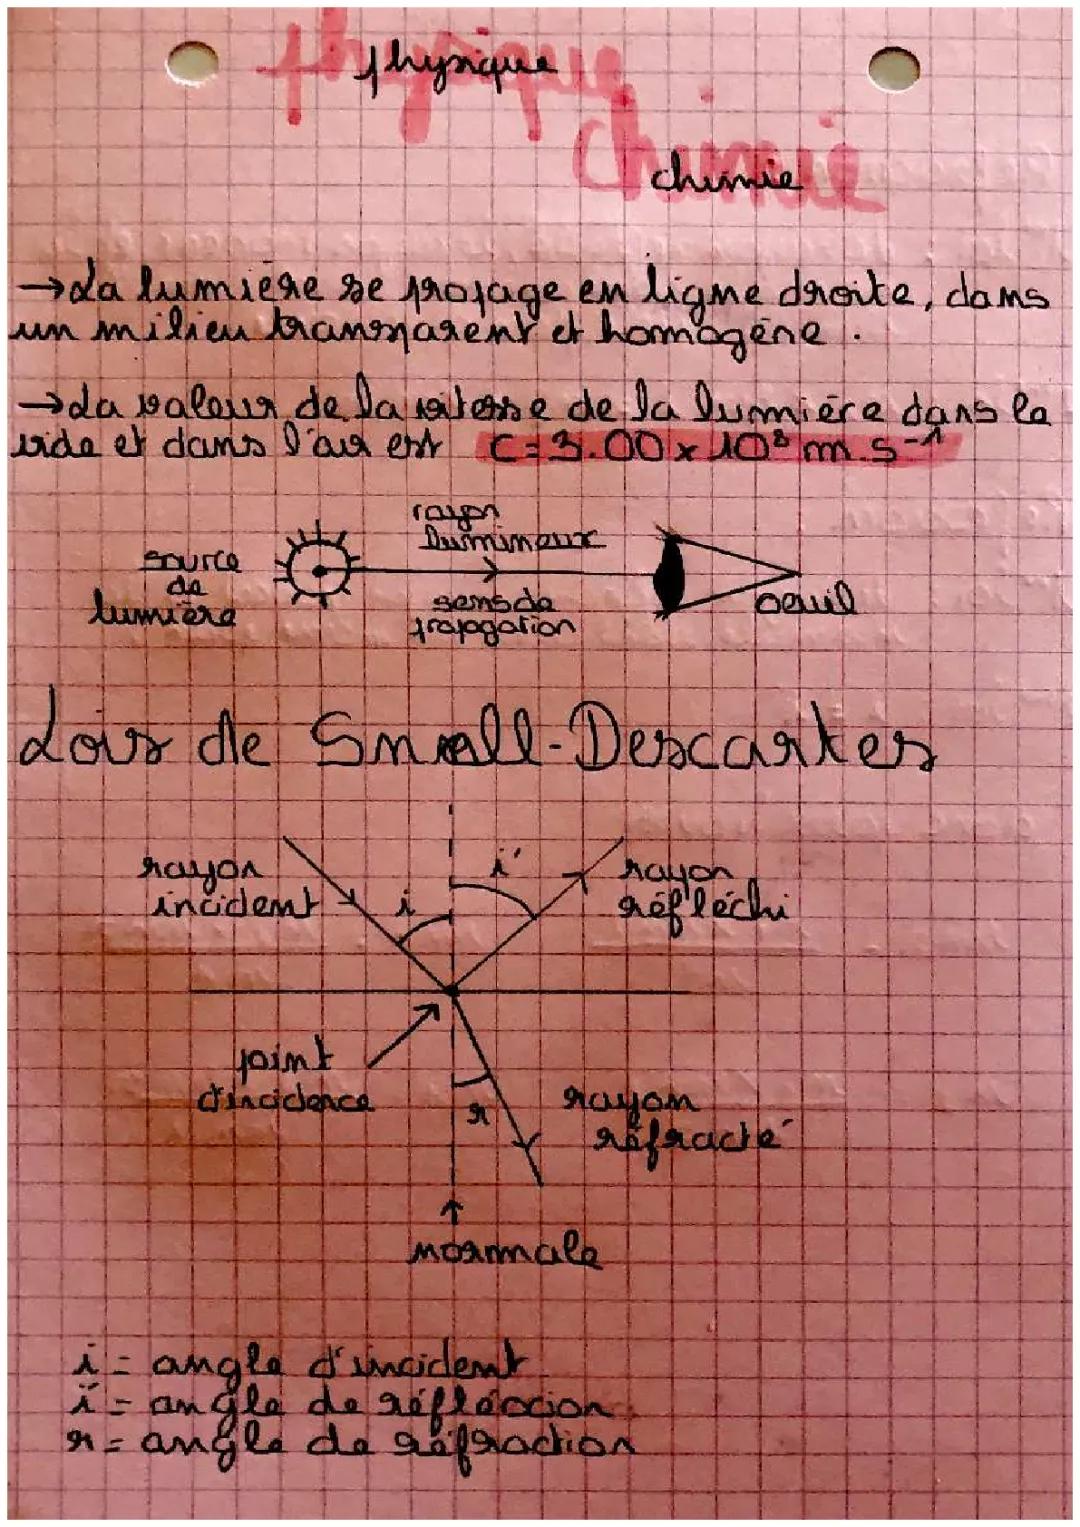 physique
chimie
→La lumière se propage en ligne droite, dans
un milieu transparent et homogène.
→La valeur de la vitesse de la lumière dans le
vide et dans l'air est C = 3.00 x 10⁸ m.s⁻¹
rayon
lumineux
source
de
lumière
sens de
propagation
oeuil
Lois de Snell-Descartes
rayon
incident
i
i'
rayon
réfléchi
point
d'incidence
r
rayon
réfracté
normale
i = angle d'incident
i' = angle de réflexion
r = angle de réfraction